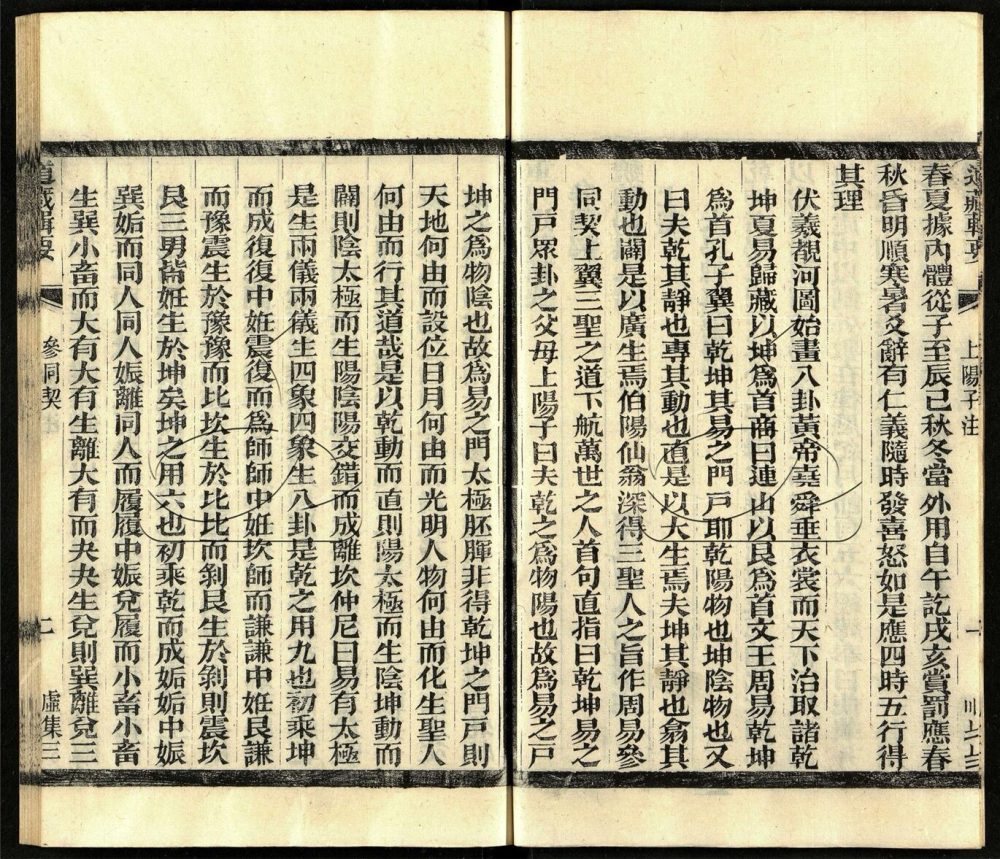 道藏輯要
上陽子注
一
春夏據內體從子至辰巳秋冬當外用自午訖戌亥賞罰應春
秋昏明順寒暑爻辭有仁義隨時發喜怒如是應四時五行得
其理
伏羲覩河圖始畫八卦黃帝堯舜垂衣裳而天下治取諸乾
坤夏易歸藏以坤爲首商曰連山以艮爲首文王周易乾坤
爲首孔子翼曰乾坤其易之門戸耶乾陽物也坤陰物也又
曰夫乾其靜也專其動也直是以大生焉夫坤其靜也翕其
動也闢是以廣生焉伯陽仙翁深得三聖人之旨作周易參
同契上翼三聖之道下航萬世之人首句直指曰乾坤易之
門戸眾卦之父母上陽子曰夫乾之爲物陽也故爲易之戸
坤之爲物陰也故爲易之門太極胚腪非得乾坤之門戸則
天地何由而設位日月何由而光明人物何由而化生聖人
何由而行其道哉是以乾動而直則陽太極而生陰坤動而
闢則陰太極而生陽陰陽交錯而成離坎仲尼曰易有太極
是生兩儀兩儀生四象四象生八卦是乾之用九也初乘坤
而成復復中姙震復而爲師師中姙坎師而謙謙中姙艮謙
而豫震生於豫豫而比坎生於比比而剝艮生於剝則震坎
艮三男皆姙生於坤矣坤之用六也初乘乾而成姤姤中娠
巽姤而同人同人娠離同人而履履中娠兌履而小畜小畜
生巽小畜而大有大有生離大有而夬夬生兌則巽離兌三
道藏輯要
參同契
二
虛集三